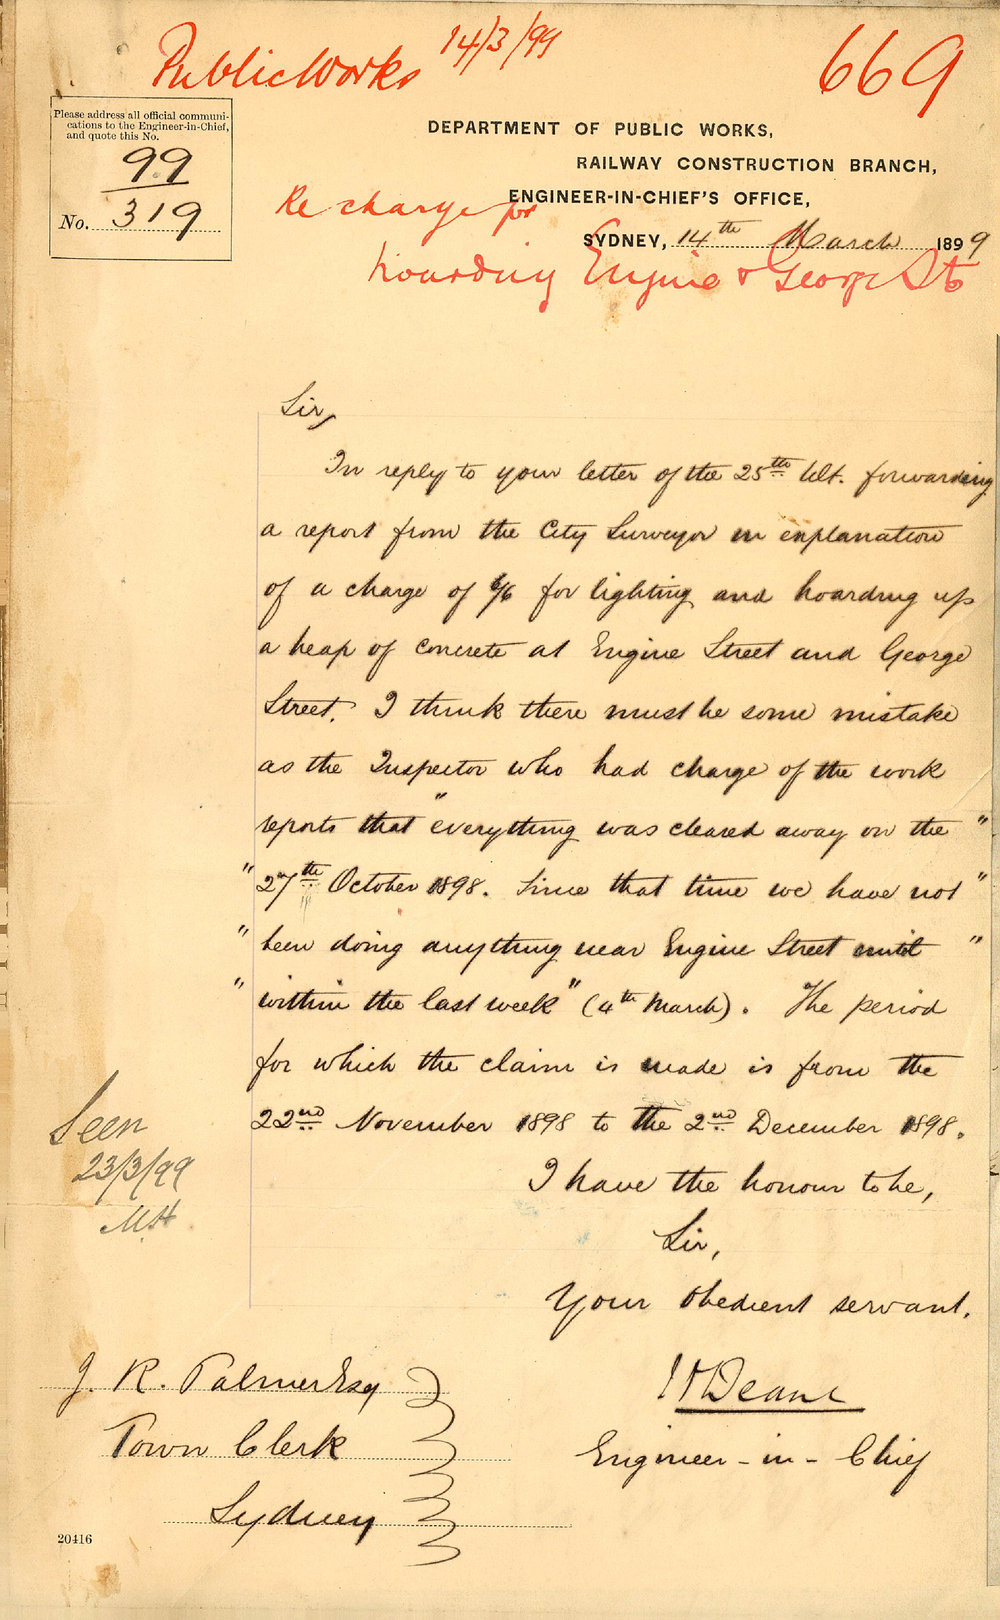 Public Works 14/3/99
669
Please address all official communi-
cations to the Engineer-in-Chief,
and quote this No.
99
No. 319
DEPARTMENT OF PUBLIC WORKS,
RAILWAY CONSTRUCTION BRANCH,
ENGINEER-IN-CHIEF'S OFFICE,
SYDNEY, 14th March 1899
Re charge for
hoarding Engine & George Sts
Sir,
In reply to your letter of the 25th ult. forwarding
a report from the City Surveyor in explanation
of a charge of for lighting and hoarding up
a heap of concrete at Engine Street and George
Street. I think there must be some mistake
as the Inspector who had charge of the work
reports that "everything was cleared away on the "
" 27th October 1898. Since that time we have not "
" been doing anything near Engine Street until "
" within the last week" (4th March). The period
for which the claim is made is from the
22nd November 1898 to the 2nd December 1898.
I have the honour to be,
Sir,
Your obedient servant.
Seen
23/3/99
MH
J. R. Palmer Esq
Town Clerk
Sydney
H Deane
Engineer-in-Chief
20416